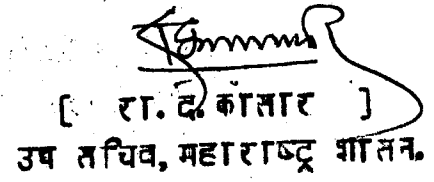 [ रा. द. कांसार ]
उप सचिव, महाराष्ट्र शासन.